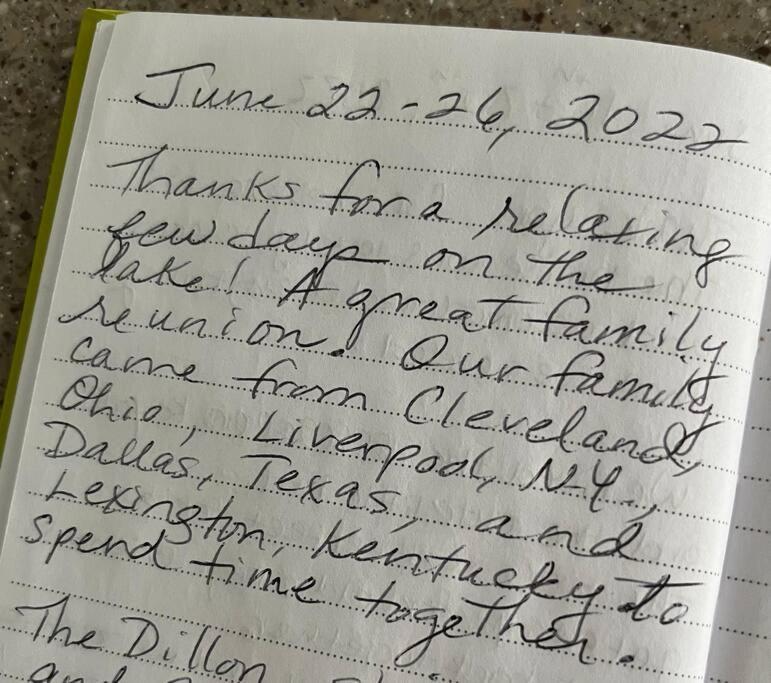 June 22-26, 2022
Thanks for a relaxing
few days on the
lake! A great family
reunion. Our family
came from Cleveland,
Ohio, Liverpool, N.Y.,
Dallas, Texas, and
Lexington, Kentucky to
spend time together.
The Dillon
and